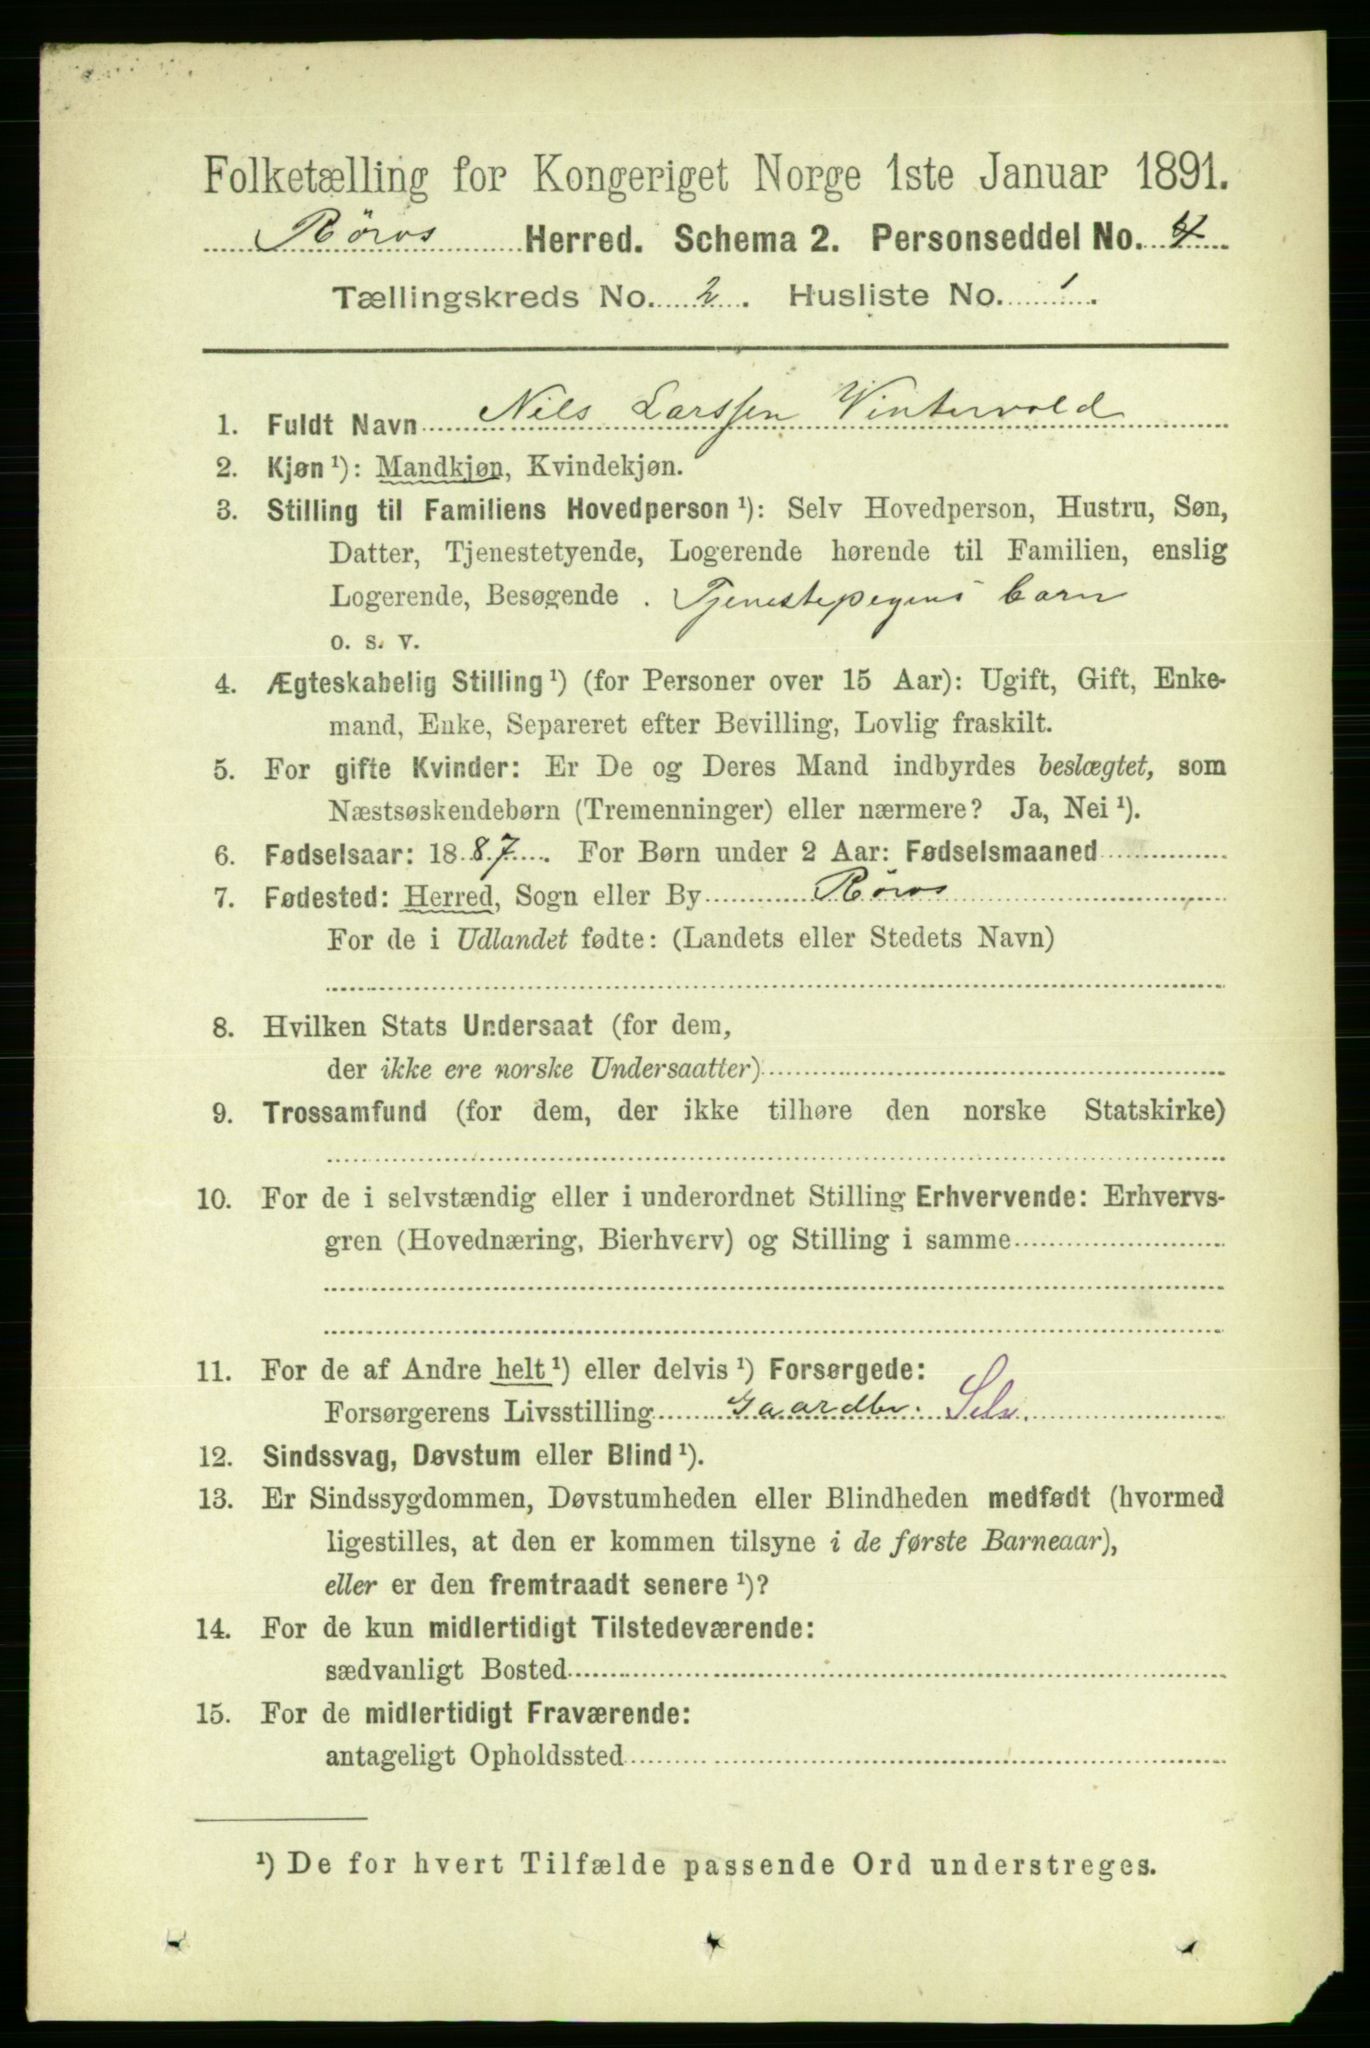 Folketælling for Kongeriget Norge 1ste Januar 1891.
Röros Herred. Schema 2. Personseddel No. 4
Tællingskreds No. 2. Husliste No. 1.
1. Fuldt Navn Nils Larssen Vintervold
2. Kjøn ¹): Mandkjøn, Kvindekjøn.
3. Stilling til Familiens Hovedperson ¹): Selv Hovedperson, Hustru, Søn,
Datter, Tjenestetyende, Logerende hørende til Familien, enslig
Logerende, Besøgende . Tjenestepigens barn
o. s. v.
4. Ægteskabelig Stilling ¹) (for Personer over 15 Aar): Ugift, Gift, Enke-
mand, Enke, Separeret efter Bevilling, Lovlig fraskilt.
5. For gifte Kvinder: Er De og Deres Mand indbyrdes beslægtet, som
Næstsøskendebørn (Tremenninger) eller nærmere? Ja, Nei ¹).
6. Fødselsaar: 1887. For Børn under 2 Aar: Fødselsmaaned
7. Fødested: Herred, Sogn eller By Röros
For de i Udlandet fødte: (Landets eller Stedets Navn)
8. Hvilken Stats Undersaat (for dem,
der ikke ere norske Undersaatter)
9. Trossamfund (for dem, der ikke tilhøre den norske Statskirke)
10. For de i selvstændig eller i underordnet Stilling Erhvervende: Erhvervs-
gren (Hovednæring, Bierhverv) og Stilling i samme
11. For de af Andre helt ¹) eller delvis ¹) Forsørgede:
Forsørgerens Livsstilling Gaardbr. Selv.
12. Sindssvag, Døvstum eller Blind ¹).
13. Er Sindssygdommen, Døvstumheden eller Blindheden medfødt (hvormed
ligestilles, at den er kommen tilsyne i de første Barneaar),
eller er den fremtraadt senere ¹)?
14. For de kun midlertidigt Tilstedeværende:
sædvanligt Bosted
15. For de midlertidigt Fraværende:
antageligt Opholdssted
¹) De for hvert Tilfælde passende Ord understreges.